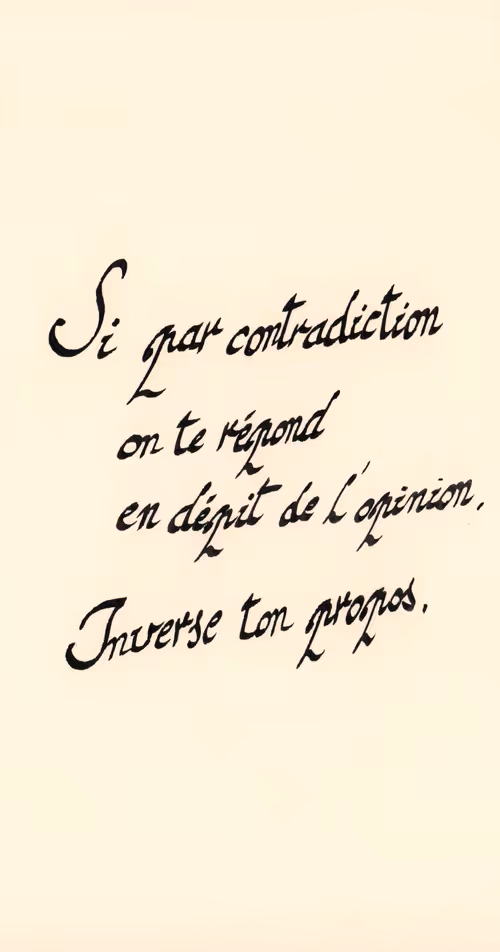 Si par contradiction
on te répond
en dépit de l'opinion,
Inverse ton propos.